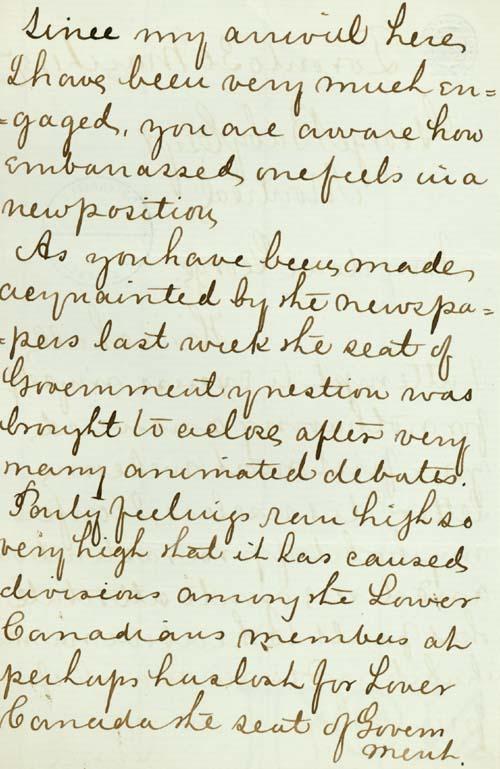 Since my arrival here
I have been very much en=
=gaged, you are aware how
embarrassed one feels in a
new position
As you have been made
acquainted by the newspa=
=pers last week the seat of
Government question was
brought to a close after very
many animated debates.
Party feelings ran high so
very high that it has caused
divisions among the Lower
Canadians members &
perhaps has lost for Lower
Canada the seat of Govern
ment.